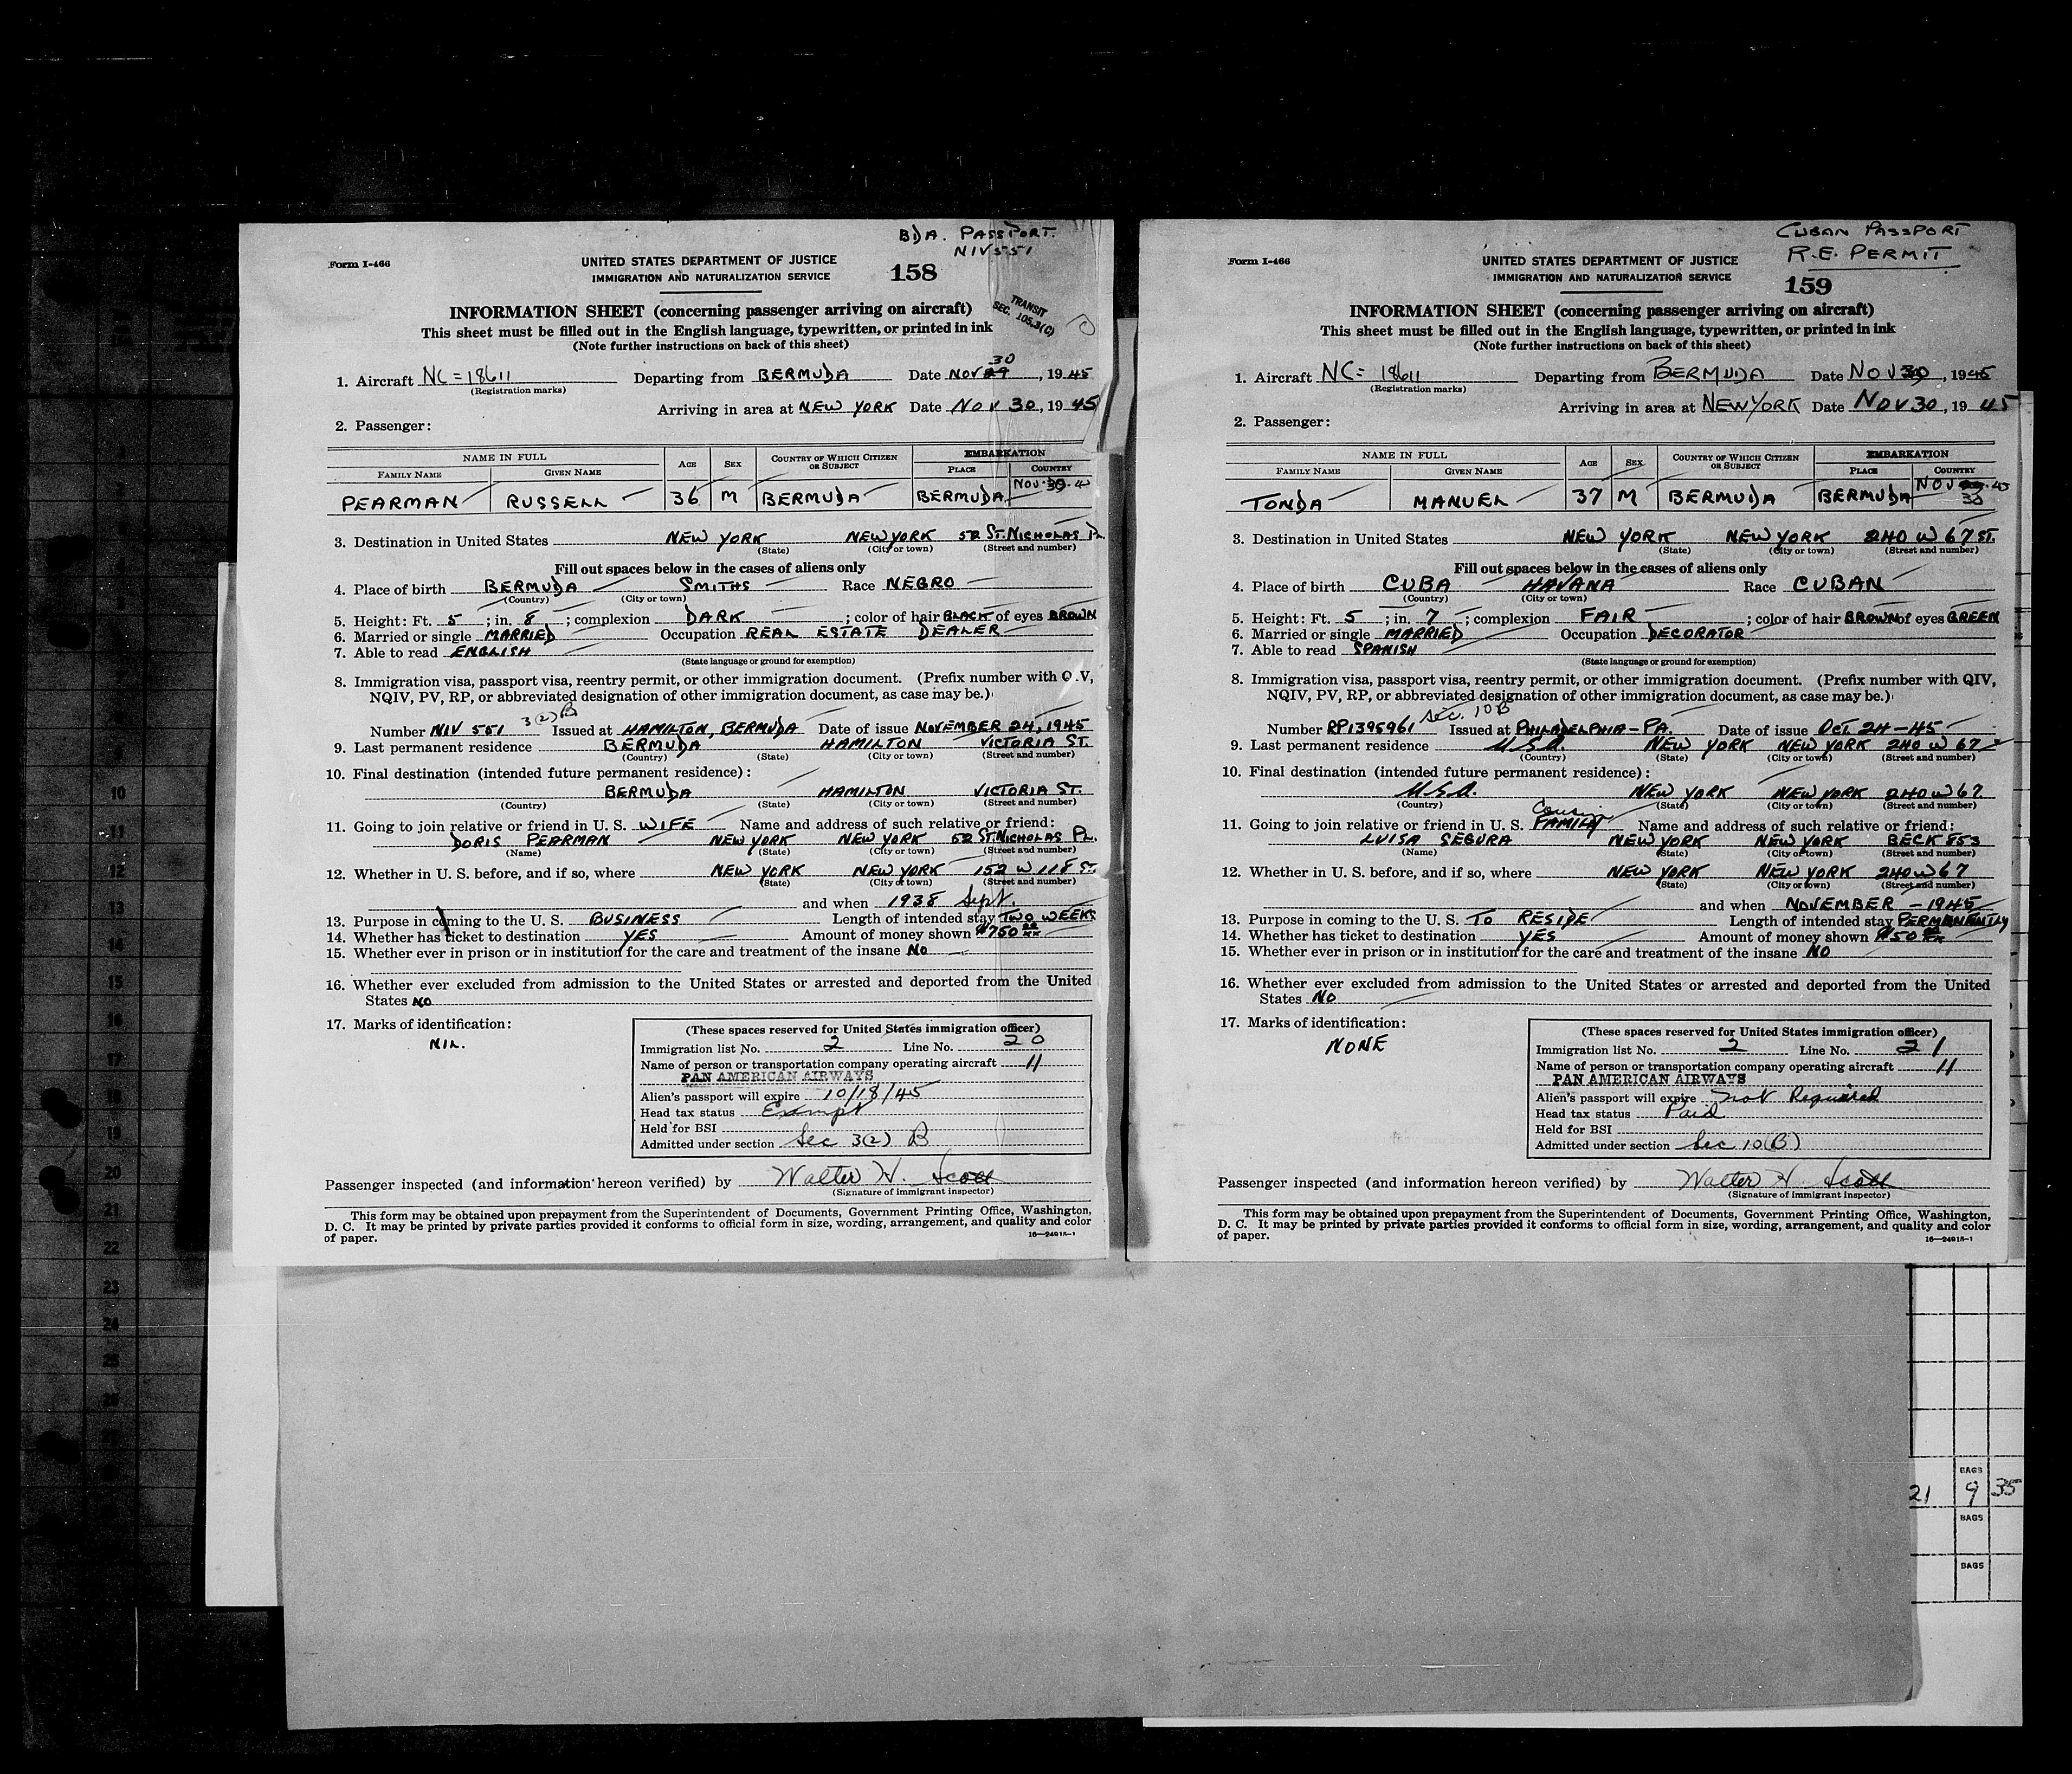 BDA. PASSPORT.
NIV 551
Form I-466
UNITED STATES DEPARTMENT OF JUSTICE
IMMIGRATION AND NATURALIZATION SERVICE
158
INFORMATION SHEET (concerning passenger arriving on aircraft)
TRANSIT
SEC. 105.3(C)
This sheet must be filled out in the English language, typewritten, or printed in ink
(Note further instructions on back of this sheet)
30
1. Aircraft NC=18611 Departing from BERMUDA Date NOV 29, 1945
(Registration marks)
Arriving in area at NEW YORK Date NOV 30, 1945
2. Passenger:
NAME IN FULL AGE SEX COUNTRY OF WHICH CITIZEN OR SUBJECT EMBARKATION
FAMILY NAME GIVEN NAME PLACE COUNTRY
PEARMAN RUSSELL 36 M BERMUDA BERMUDA NOV.
3. Destination in United States NEW YORK NEW YORK 52 ST. NICHOLAS PL.
(State) (City or town) (Street and number)
Fill out spaces below in the cases of aliens only
4. Place of birth BERMUDA SMITHS Race NEGRO
(Country) (City or town)
5. Height: Ft. 5; in. 8; complexion DARK; color of hair BLACK of eyes BROWN
6. Married or single MARRIED Occupation REAL ESTATE DEALER
7. Able to read ENGLISH
(State language or ground for exemption)
8. Immigration visa, passport visa, reentry permit, or other immigration document. (Prefix number with Q.V,
NQIV, PV, RP, or abbreviated designation of other immigration document, as case may be.)
3(2) B
Number NIV 551 Issued at HAMILTON, BERMUDA Date of issue NOVEMBER 24, 1945
9. Last permanent residence BERMUDA HAMILTON VICTORIA ST.
(Country) (State) (City or town) (Street and number)
10. Final destination (intended future permanent residence):
BERMUDA HAMILTON VICTORIA ST.
(Country) (State) (City or town) (Street and number)
11. Going to join relative or friend in U. S. WIFE Name and address of such relative or friend:
DORIS PEARMAN NEW YORK NEW YORK 52 ST. NICHOLAS PL.
(Name) (State) (City or town) (Street and number)
12. Whether in U. S. before, and if so, where NEW YORK NEW YORK 152 W 118 ST.
(State) (City or town) (Street and number)
and when 1938 Sept.
13. Purpose in coming to the U. S. BUSINESS Length of intended stay TWO WEEKS
14. Whether has ticket to destination YES Amount of money shown $750
15. Whether ever in prison or in institution for the care and treatment of the insane NO
16. Whether ever excluded from admission to the United States or arrested and deported from the United
States NO
17. Marks of identification:
NIL.
(These spaces reserved for United States immigration officer)
Immigration list No. 2 Line No. 20
Name of person or transportation company operating aircraft 11
PAN AMERICAN AIRWAYS
Alien's passport will expire 10/18/45
Head tax status Exempt
Held for BSI
Admitted under section Sec 3(2) B
Passenger inspected (and information hereon verified) by Walter H. Scott
(Signature of immigrant inspector)
This form may be obtained upon prepayment from the Superintendent of Documents, Government Printing Office, Washington,
D. C. It may be printed by private parties provided it conforms to official form in size, wording, arrangement, and quality and color
of paper.
16—24915-1
CUBAN PASSPORT
R.E. PERMIT
Form I-466
UNITED STATES DEPARTMENT OF JUSTICE
IMMIGRATION AND NATURALIZATION SERVICE
159
INFORMATION SHEET (concerning passenger arriving on aircraft)
This sheet must be filled out in the English language, typewritten, or printed in ink
(Note further instructions on back of this sheet)
1. Aircraft NC= 18611 Departing from BERMUDA Date NOV 30, 1945
(Registration marks)
Arriving in area at NEW YORK Date NOV 30, 1945
2. Passenger:
NAME IN FULL AGE SEX COUNTRY OF WHICH CITIZEN OR SUBJECT EMBARKATION
FAMILY NAME GIVEN NAME PLACE COUNTRY
TONDA MANUEL 37 M BERMUDA BERMUDA NOV 30
3. Destination in United States NEW YORK NEW YORK 240 W 67 ST.
(State) (City or town) (Street and number)
Fill out spaces below in the cases of aliens only
4. Place of birth CUBA HAVANA Race CUBAN
(Country) (City or town)
5. Height: Ft. 5; in. 7; complexion FAIR; color of hair BROWN of eyes GREEN
6. Married or single MARRIED Occupation DECORATOR
7. Able to read SPANISH
(State language or ground for exemption)
8. Immigration visa, passport visa, reentry permit, or other immigration document. (Prefix number with QIV,
NQIV, PV, RP, or abbreviated designation of other immigration document, as case may be.)
Sec. 10 B
Number RP1395961 Issued at PHILADELPHIA-PA. Date of issue OCT. 24-45
9. Last permanent residence U.S.A. NEW YORK NEW YORK 240 W 67
(Country) (State) (City or town) (Street and number)
10. Final destination (intended future permanent residence):
U.S.A. NEW YORK NEW YORK 240 W 67
(Country) (State) (City or town) (Street and number)
Cousin
11. Going to join relative or friend in U. S. FAMILY Name and address of such relative or friend:
LUISA SEGURA NEW YORK NEW YORK BECK 853
(Name) (State) (City or town) (Street and number)
12. Whether in U. S. before, and if so, where NEW YORK NEW YORK 240 W 67
(State) (City or town) (Street and number)
and when NOVEMBER - 1945
13. Purpose in coming to the U. S. TO RESIDE Length of intended stay PERMANENTLY
14. Whether has ticket to destination YES Amount of money shown $50
15. Whether ever in prison or in institution for the care and treatment of the insane NO
16. Whether ever excluded from admission to the United States or arrested and deported from the United
States NO
17. Marks of identification:
NONE
(These spaces reserved for United States immigration officer)
Immigration list No. 2 Line No. 21
Name of person or transportation company operating aircraft 11
PAN AMERICAN AIRWAYS
Alien's passport will expire Not Required
Head tax status Paid
Held for BSI
Admitted under section Sec 10(B)
Passenger inspected (and information hereon verified) by Walter H Scott
(Signature of immigrant inspector)
This form may be obtained upon prepayment from the Superintendent of Documents, Government Printing Office, Washington,
D. C. It may be printed by private parties provided it conforms to official form in size, wording, arrangement, and quality and color
of paper.
16—24915-1
10
11
12
13
14
15
16
17
18
19
20
21
22
23
24
25
26
BAGS
21 9 35
BAGS
BAGS